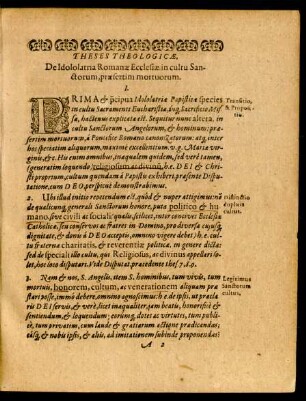 THESES THEOLOGICÆ,
De Idololatria Romanæ Ecclesiæ in cultu San-
ctorum, præsertim mortuorum.
I.
PRIMA & præcipua Idololatriæ Papisticæ species
in cultu Sacramenti Eucharistiæ, Sacrificio Mis-
sæ, hactenus explicata est. Sequitur nunc altera, in
cultu Sanctorum Angelorum, & hominum; præ-
sertim mortuorum, à Pontifice Romano canonizatorum: atq; inter
hos speciatim aliquorum, maximè excellentium v.g. Mariæ vir-
ginis, &c. His enim omnibus,
religiosum ac divinum, h.e. DEI & Chri-
sti proprium, cultum quendam à Papistis exhiberi, præsenti Dispu-
tatione, cum DEO, demonstrabimus.
Transitio,
& Propos.
2.
de qualicunq; generali Sanctorum honore, puta politico & hu-
mano, seu civili ac sociali
Catholica, seu conservos ac fratres in Domino, pro diversa causa,
dignitate, & donis à DEO acceptis, omnino vigere debet; h.e. cul-
tu fraternæ charitatis, & reverentiæ
sed de speciali illo cultu, qui Religiosus, ac divinus appellari so-
let, hoc in loco disputari. Vide Disputat. præcedente
3. Nam & nos, S. Angelis, item S. hominibus, tum vivis, tum
mortuis, honorem, cultum, ac venerationem aliquam præ-
stari posse, immò debere, omnino agnoscimus: h.e. de ipsis, ut præcla-
ris DEI servis, & verè licet inæqualiter, jam beatis, honorificè &
sentiendum, & loquendum; eorumq; dotes ac virtutes, tum publi-
cè, tum privatim, cum laude & gratiarum actione prædicandas;
easq; & nobis ipsis, & aliis, ad imitationem subinde proponendas:
Legitimus
Sanctorum
cultus.
A 2